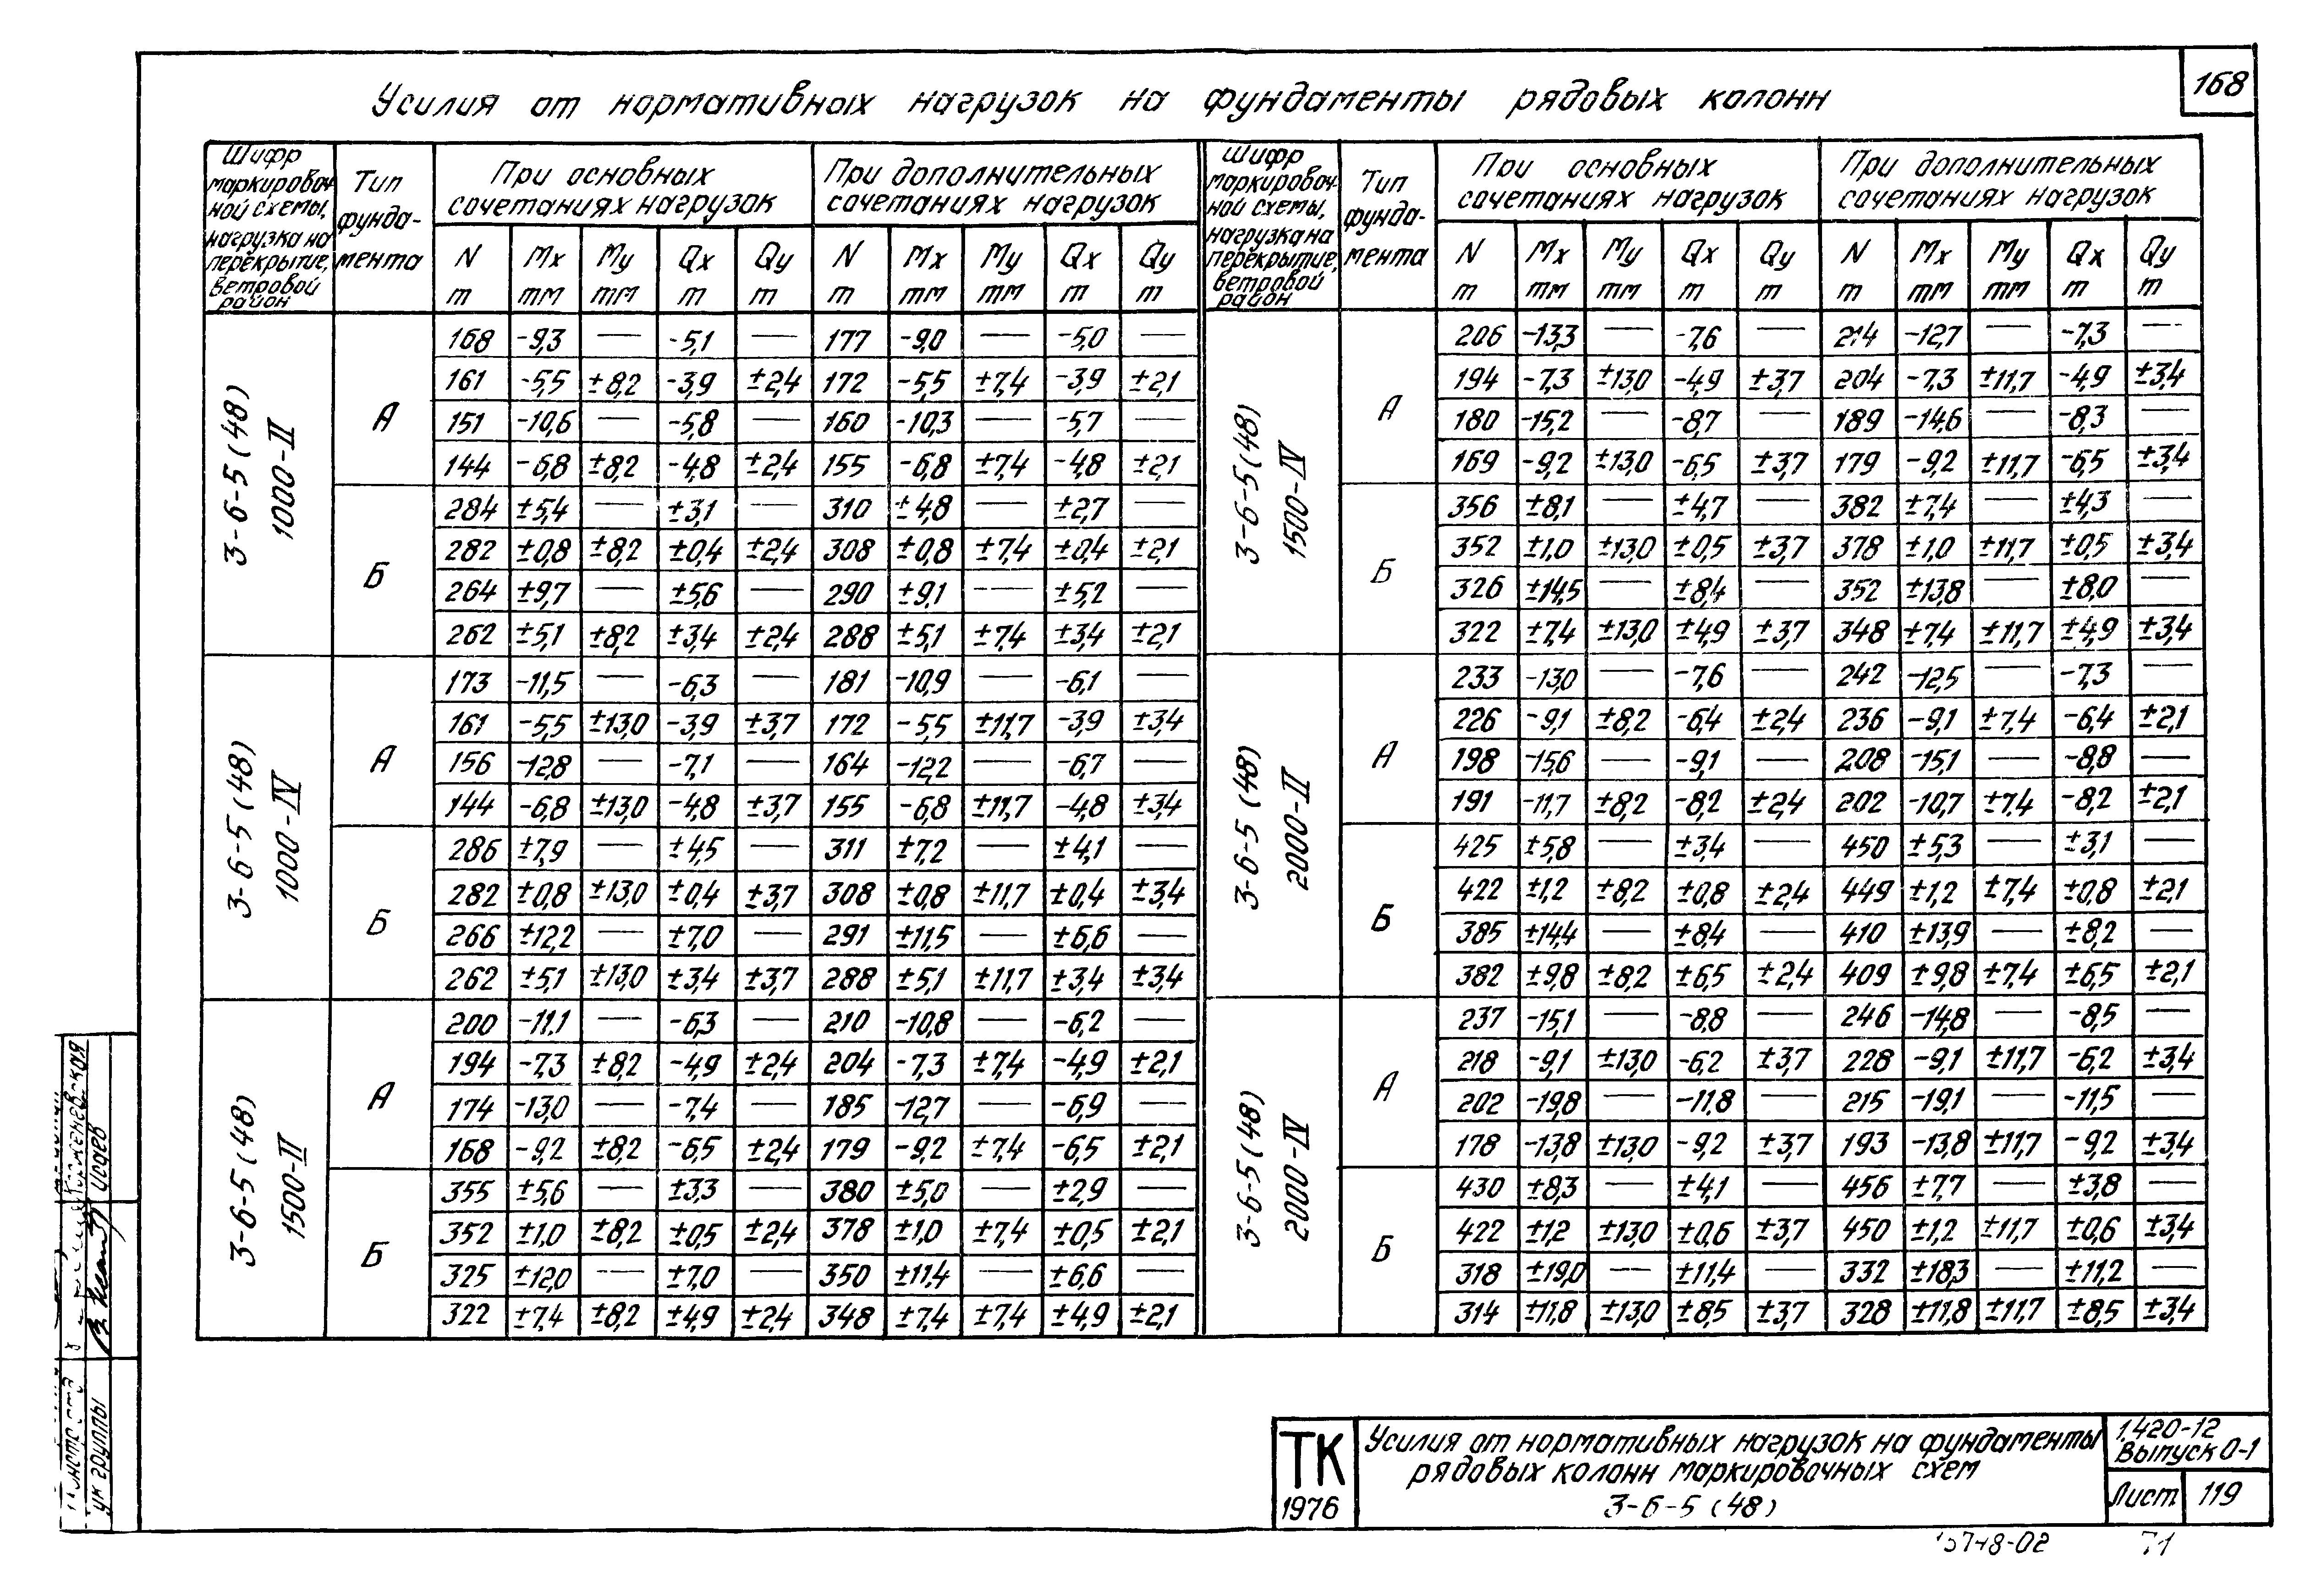 168
Усилия от нормативных нагрузок на фундаменты рядовых колонн
Шифр маркировочной схемы, нагрузка на перекрытие, ветровой район | Тип фундамента | При основных сочетаниях нагрузок | При дополнительных сочетаниях нагрузок
N т | Mx тм | My тм | Qx т | Qy т | N т | Mx тм | My тм | Qx т | Qy т
3-6-5(48) 1000-II
А
168 -9,3 — -5,1 — 177 -9,0 — -5,0 —
161 -5,5 ±8,2 -3,9 ±2,4 172 -5,5 ±7,4 -3,9 ±2,1
151 -10,6 — -5,8 — 160 -10,3 — -5,7 —
144 -6,8 ±8,2 -4,8 ±2,4 155 -6,8 ±7,4 -4,8 ±2,1
Б
284 ±5,4 — ±3,1 — 310 ±4,8 — ±2,7 —
282 ±0,8 ±8,2 ±0,4 ±2,4 308 ±0,8 ±7,4 ±0,4 ±2,1
264 ±9,7 — ±5,6 — 290 ±9,1 — ±5,2 —
262 ±5,1 ±8,2 ±3,4 ±2,4 288 ±5,1 ±7,4 ±3,4 ±2,1
3-6-5(48) 1000-IV
А
173 -11,5 — -6,3 — 181 -10,9 — -6,1 —
161 -5,5 ±13,0 -3,9 ±3,7 172 -5,5 ±11,7 -3,9 ±3,4
156 -12,8 — -7,1 — 164 -12,2 — -6,7 —
144 -6,8 ±13,0 -4,8 ±3,7 155 -6,8 ±11,7 -4,8 ±3,4
Б
286 ±7,9 — ±4,5 — 311 ±7,2 — ±4,1 —
282 ±0,8 ±13,0 ±0,4 ±3,7 308 ±0,8 ±11,7 ±0,4 ±3,4
266 ±12,2 — ±7,0 — 291 ±11,5 — ±6,6 —
262 ±5,1 ±13,0 ±3,4 ±3,7 288 ±5,1 ±11,7 ±3,4 ±3,4
3-6-5(48) 1500-II
А
200 -11,1 — -6,3 — 210 -10,8 — -6,2 —
194 -7,3 ±8,2 -4,9 ±2,4 204 -7,3 ±7,4 -4,9 ±2,1
174 -13,0 — -7,4 — 185 -12,7 — -6,9 —
168 -9,2 ±8,2 -6,5 ±2,4 179 -9,2 ±7,4 -6,5 ±2,1
Б
355 ±5,6 — ±3,3 — 380 ±5,0 — ±2,9 —
352 ±1,0 ±8,2 ±0,5 ±2,4 378 ±1,0 ±7,4 ±0,5 ±2,1
325 ±12,0 — ±7,0 — 350 ±11,4 — ±6,6 —
322 ±7,4 ±8,2 ±4,9 ±2,4 348 ±7,4 ±7,4 ±4,9 ±2,1
Шифр маркировочной схемы, нагрузка на перекрытие, ветровой район | Тип фундамента | При основных сочетаниях нагрузок | При дополнительных сочетаниях нагрузок
N т | Mx тм | My тм | Qx т | Qy т | N т | Mx тм | My тм | Qx т | Qy т
3-6-5(48) 1500-IV
А
206 -13,3 — -7,6 — 214 -12,7 — -7,3 —
194 -7,3 ±13,0 -4,9 ±3,7 204 -7,3 ±11,7 -4,9 ±3,4
180 -15,2 — -8,7 — 189 -14,6 — -8,3 —
169 -9,2 ±13,0 -6,5 ±3,7 179 -9,2 ±11,7 -6,5 ±3,4
Б
356 ±8,1 — ±4,7 — 382 ±7,4 — ±4,3 —
352 ±1,0 ±13,0 ±0,5 ±3,7 378 ±1,0 ±11,7 ±0,5 ±3,4
326 ±14,5 — ±8,4 — 352 ±13,8 — ±8,0 —
322 ±7,4 ±13,0 ±4,9 ±3,7 348 ±7,4 ±11,7 ±4,9 ±3,4
3-6-5(48) 2000-II
А
233 -13,0 — -7,6 — 242 -12,5 — -7,3 —
226 -9,1 ±8,2 -6,4 ±2,4 236 -9,1 ±7,4 -6,4 ±2,1
198 -15,6 — -9,1 — 208 -15,1 — -8,8 —
191 -11,7 ±8,2 -8,2 ±2,4 202 -10,7 ±7,4 -8,2 ±2,1
Б
425 ±5,8 — ±3,4 — 450 ±5,3 — ±3,1 —
422 ±1,2 ±8,2 ±0,8 ±2,4 449 ±1,2 ±7,4 ±0,8 ±2,1
385 ±14,4 — ±8,4 — 410 ±13,9 — ±8,2 —
382 ±9,8 ±8,2 ±6,5 ±2,4 409 ±9,8 ±7,4 ±6,5 ±2,1
3-6-5(48) 2000-IV
А
237 -15,1 — -8,8 — 246 -14,8 — -8,5 —
218 -9,1 ±13,0 -6,2 ±3,7 228 -9,1 ±11,7 -6,2 ±3,4
202 -19,8 — -11,8 — 215 -19,1 — -11,5 —
178 -13,8 ±13,0 -9,2 ±3,7 193 -13,8 ±11,7 -9,2 ±3,4
Б
430 ±8,3 — ±4,1 — 456 ±7,7 — ±3,8 —
422 ±1,2 ±13,0 ±0,6 ±3,7 450 ±1,2 ±11,7 ±0,6 ±3,4
318 ±19,0 — ±11,4 — 332 ±18,3 — ±11,2 —
314 ±11,8 ±13,0 ±8,5 ±3,7 328 ±11,8 ±11,7 ±8,5 ±3,4
ТК
1976
Усилия от нормативных нагрузок на фундаменты
рядовых колонн маркировочных схем
3-6-5(48)
1.420-12
Выпуск 0-1
Лист 119
71